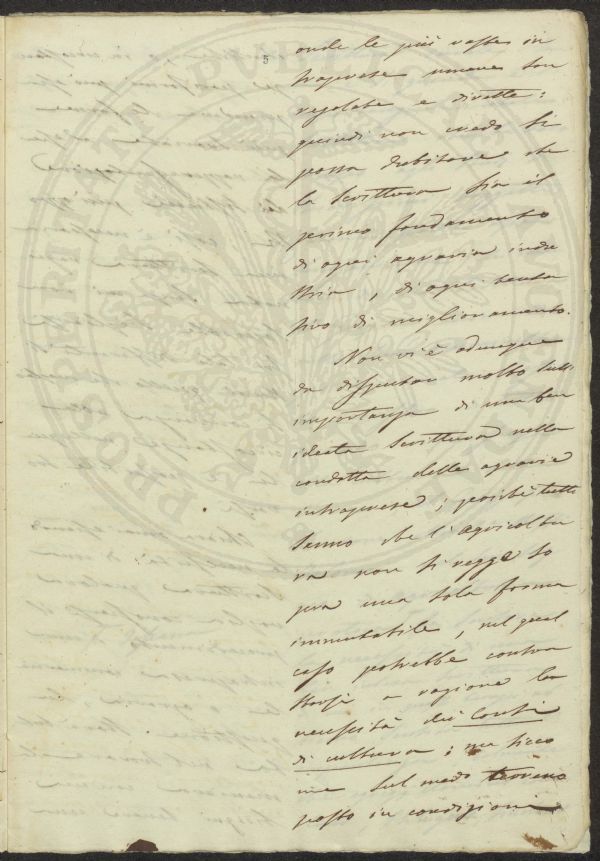 5
onde le più vaste in
traprese umane son
regolate e dirette:
quindi non credo si
possa dubitare che
la Scrittura sia il
primo fondamento
di ogni agraria indu
stria, di ogni tenta
tivo di miglioramento.
Non vi è adunque
da disputar molto sull'
importanza di una ben
ideata Scrittura nella
condotta delle agrarie
intraprese; poichè tutti
sanno che l'agricoltu
ra non si regge so
pra una sola forma
immutabile, nel qual
caso potrebbe contra
starsi a ragione la
necessità dei Conti
di cultura; ma sicco
me sul medo terreno
posto in condizioni